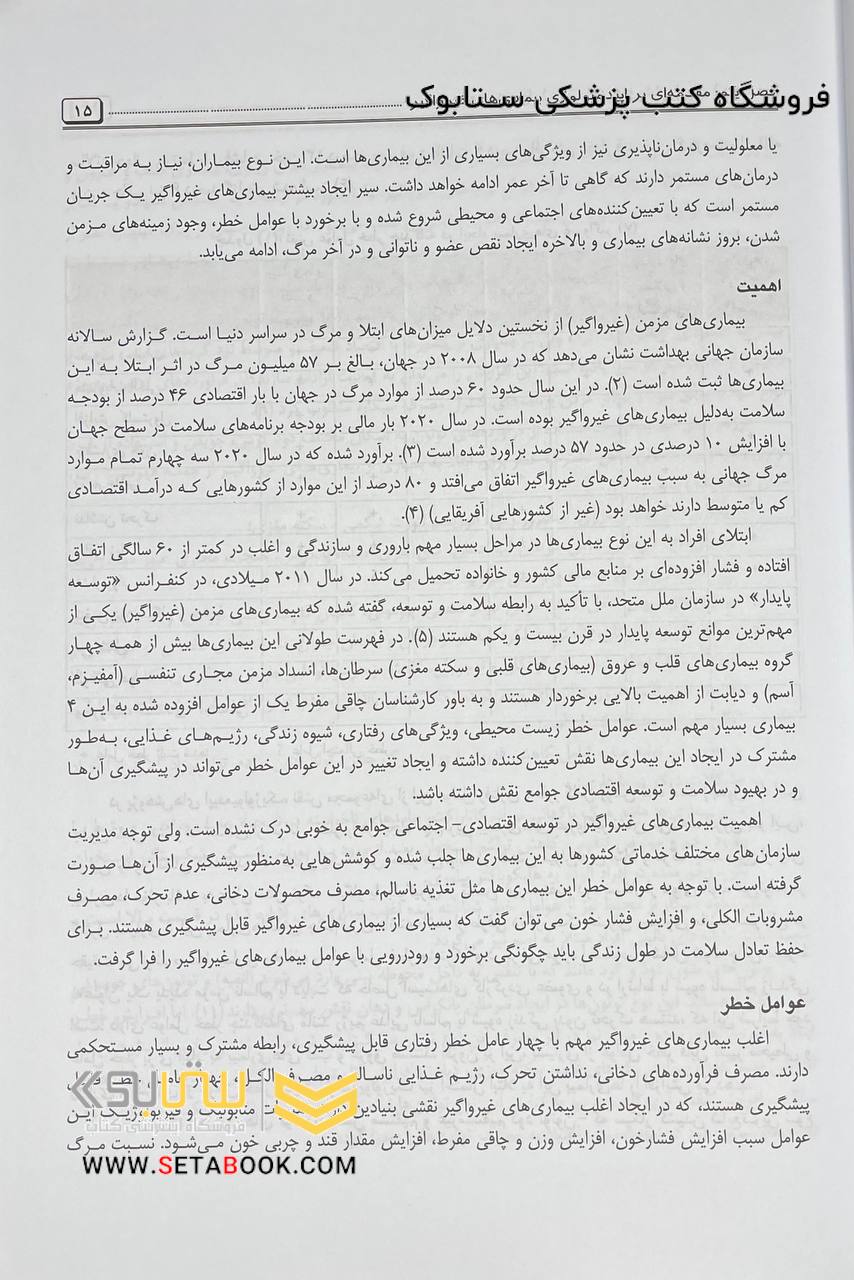 فروشگاه کتب پزشکی ستابوک
۱۵
یا معلولیت و درمان‌ناپذیری نیز از ویژگی‌های بسیاری از این بیماری‌ها است. این نوع بیماران، نیاز به مراقبت و
درمان‌های مستمر دارند که گاهی تا آخر عمر ادامه خواهد داشت. سیر ایجاد بیشتر بیماری‌های غیرواگیر یک جریان
مستمر است که با تعیین‌کننده‌های اجتماعی و محیطی شروع شده و با برخورد با عوامل خطر، وجود زمینه‌های مزمن
شدن، بروز نشانه‌های بیماری و بالاخره ایجاد نقص عضو و ناتوانی و در آخر مرگ، ادامه می‌یابد.
اهمیت
بیماری‌های مزمن (غیرواگیر) از نخستین دلایل میزان‌های ابتلا و مرگ در سراسر دنیا است. گزارش سالانه
سازمان جهانی بهداشت نشان می‌دهد که در سال ۲۰۰۸ در جهان، بالغ بر ۵۷ میلیون مرگ در اثر ابتلا به این
بیماری‌ها ثبت شده است (۲). در این سال حدود ۶۰ درصد از موارد مرگ در جهان با بار اقتصادی ۴۶ درصد از بودجه
سلامت به‌دلیل بیماری‌های غیرواگیر بوده است. در سال ۲۰۲۰ بار مالی بر بودجه برنامه‌های سلامت در سطح جهان
با افزایش ۱۰ درصدی در حدود ۵۷ درصد برآورد شده است (۳). برآورد شده که در سال ۲۰۲۰ سه چهارم تمام موارد
مرگ جهانی به سبب بیماری‌های غیرواگیر اتفاق می‌افتد و ۸۰ درصد از این موارد از کشورهایی که درآمد اقتصادی
کم یا متوسط دارند خواهد بود (غیر از کشورهایی آفریقایی) (۴).
ابتلای افراد به این نوع بیماری‌ها در مراحل بسیار مهم باروری و سازندگی و اغلب در کمتر از ۶۰ سالگی اتفاق
افتاده و فشار افزوده‌ای بر منابع مالی کشور و خانواده تحمیل می‌کند. در سال ۲۰۱۱ میلادی، در کنفرانس «توسعه
پایدار» در سازمان ملل متحد، با تأکید به رابطه سلامت و توسعه، گفته شده که بیماری‌های مزمن (غیرواگیر) یکی از
مهم‌ترین موانع توسعه پایدار در قرن بیست و یکم هستند (۵). در فهرست طولانی این بیماری‌ها بیش از همه چهار
گروه بیماری‌های قلب و عروق (بیماری‌های قلبی و سکته مغزی) سرطان‌ها، انسداد مزمن مجاری تنفسی (آمفیزم،
آسم) و دیابت از اهمیت بالایی برخوردار هستند و به باور کارشناسان چاقی مفرط یک از عوامل افزوده شده به این ۴
بیماری بسیار مهم است. عوامل خطر زیست محیطی، ویژگی‌های رفتاری، شیوه زندگی، رژیم‌های غذایی، به‌طور
مشترک در ایجاد این بیماری‌ها نقش تعیین‌کننده داشته و ایجاد تغییر در این عوامل خطر می‌تواند در پیشگیری آن‌ها
و در بهبود سلامت و توسعه اقتصادی جوامع نقش داشته باشد.
اهمیت بیماری‌های غیرواگیر در توسعه اقتصادی– اجتماعی جوامع به خوبی درک نشده است. ولی توجه مدیریت
سازمان‌های مختلف خدماتی کشورها به این بیماری‌ها جلب شده و کوشش‌هایی به‌منظور پیشگیری از آن‌ها صورت
گرفته است. با توجه به عوامل خطر این بیماری‌ها مثل تغذیه ناسالم، مصرف محصولات دخانی، عدم تحرک، مصرف
مشروبات الکلی، و افزایش فشار خون می‌توان گفت که بسیاری از بیماری‌های غیرواگیر قابل پیشگیری هستند. برای
حفظ تعادل سلامت در طول زندگی باید چگونگی برخورد و رودررویی با عوامل بیماری‌های غیرواگیر را فرا گرفت.
عوامل خطر
اغلب بیماری‌های غیرواگیر مهم با چهار عامل خطر رفتاری قابل پیشگیری، رابطه مشترک و بسیار مستحکمی
دارند. مصرف فرآورده‌های دخانی، نداشتن تحرک، رژیم غذایی ناسالم و مصرف الکل،
پیشگیری هستند، که در ایجاد اغلب بیماری‌های غیرواگیر نقشی بنیادین متابولیک و فیزیولوژیک این
عوامل سبب افزایش فشارخون، افزایش وزن و چاقی مفرط، افزایش مقدار قند و چربی خون می‌شود. نسبت مرگ
ستابوک
فروشگاه اینترنتی کتاب
WWW.SETABOOK.COM